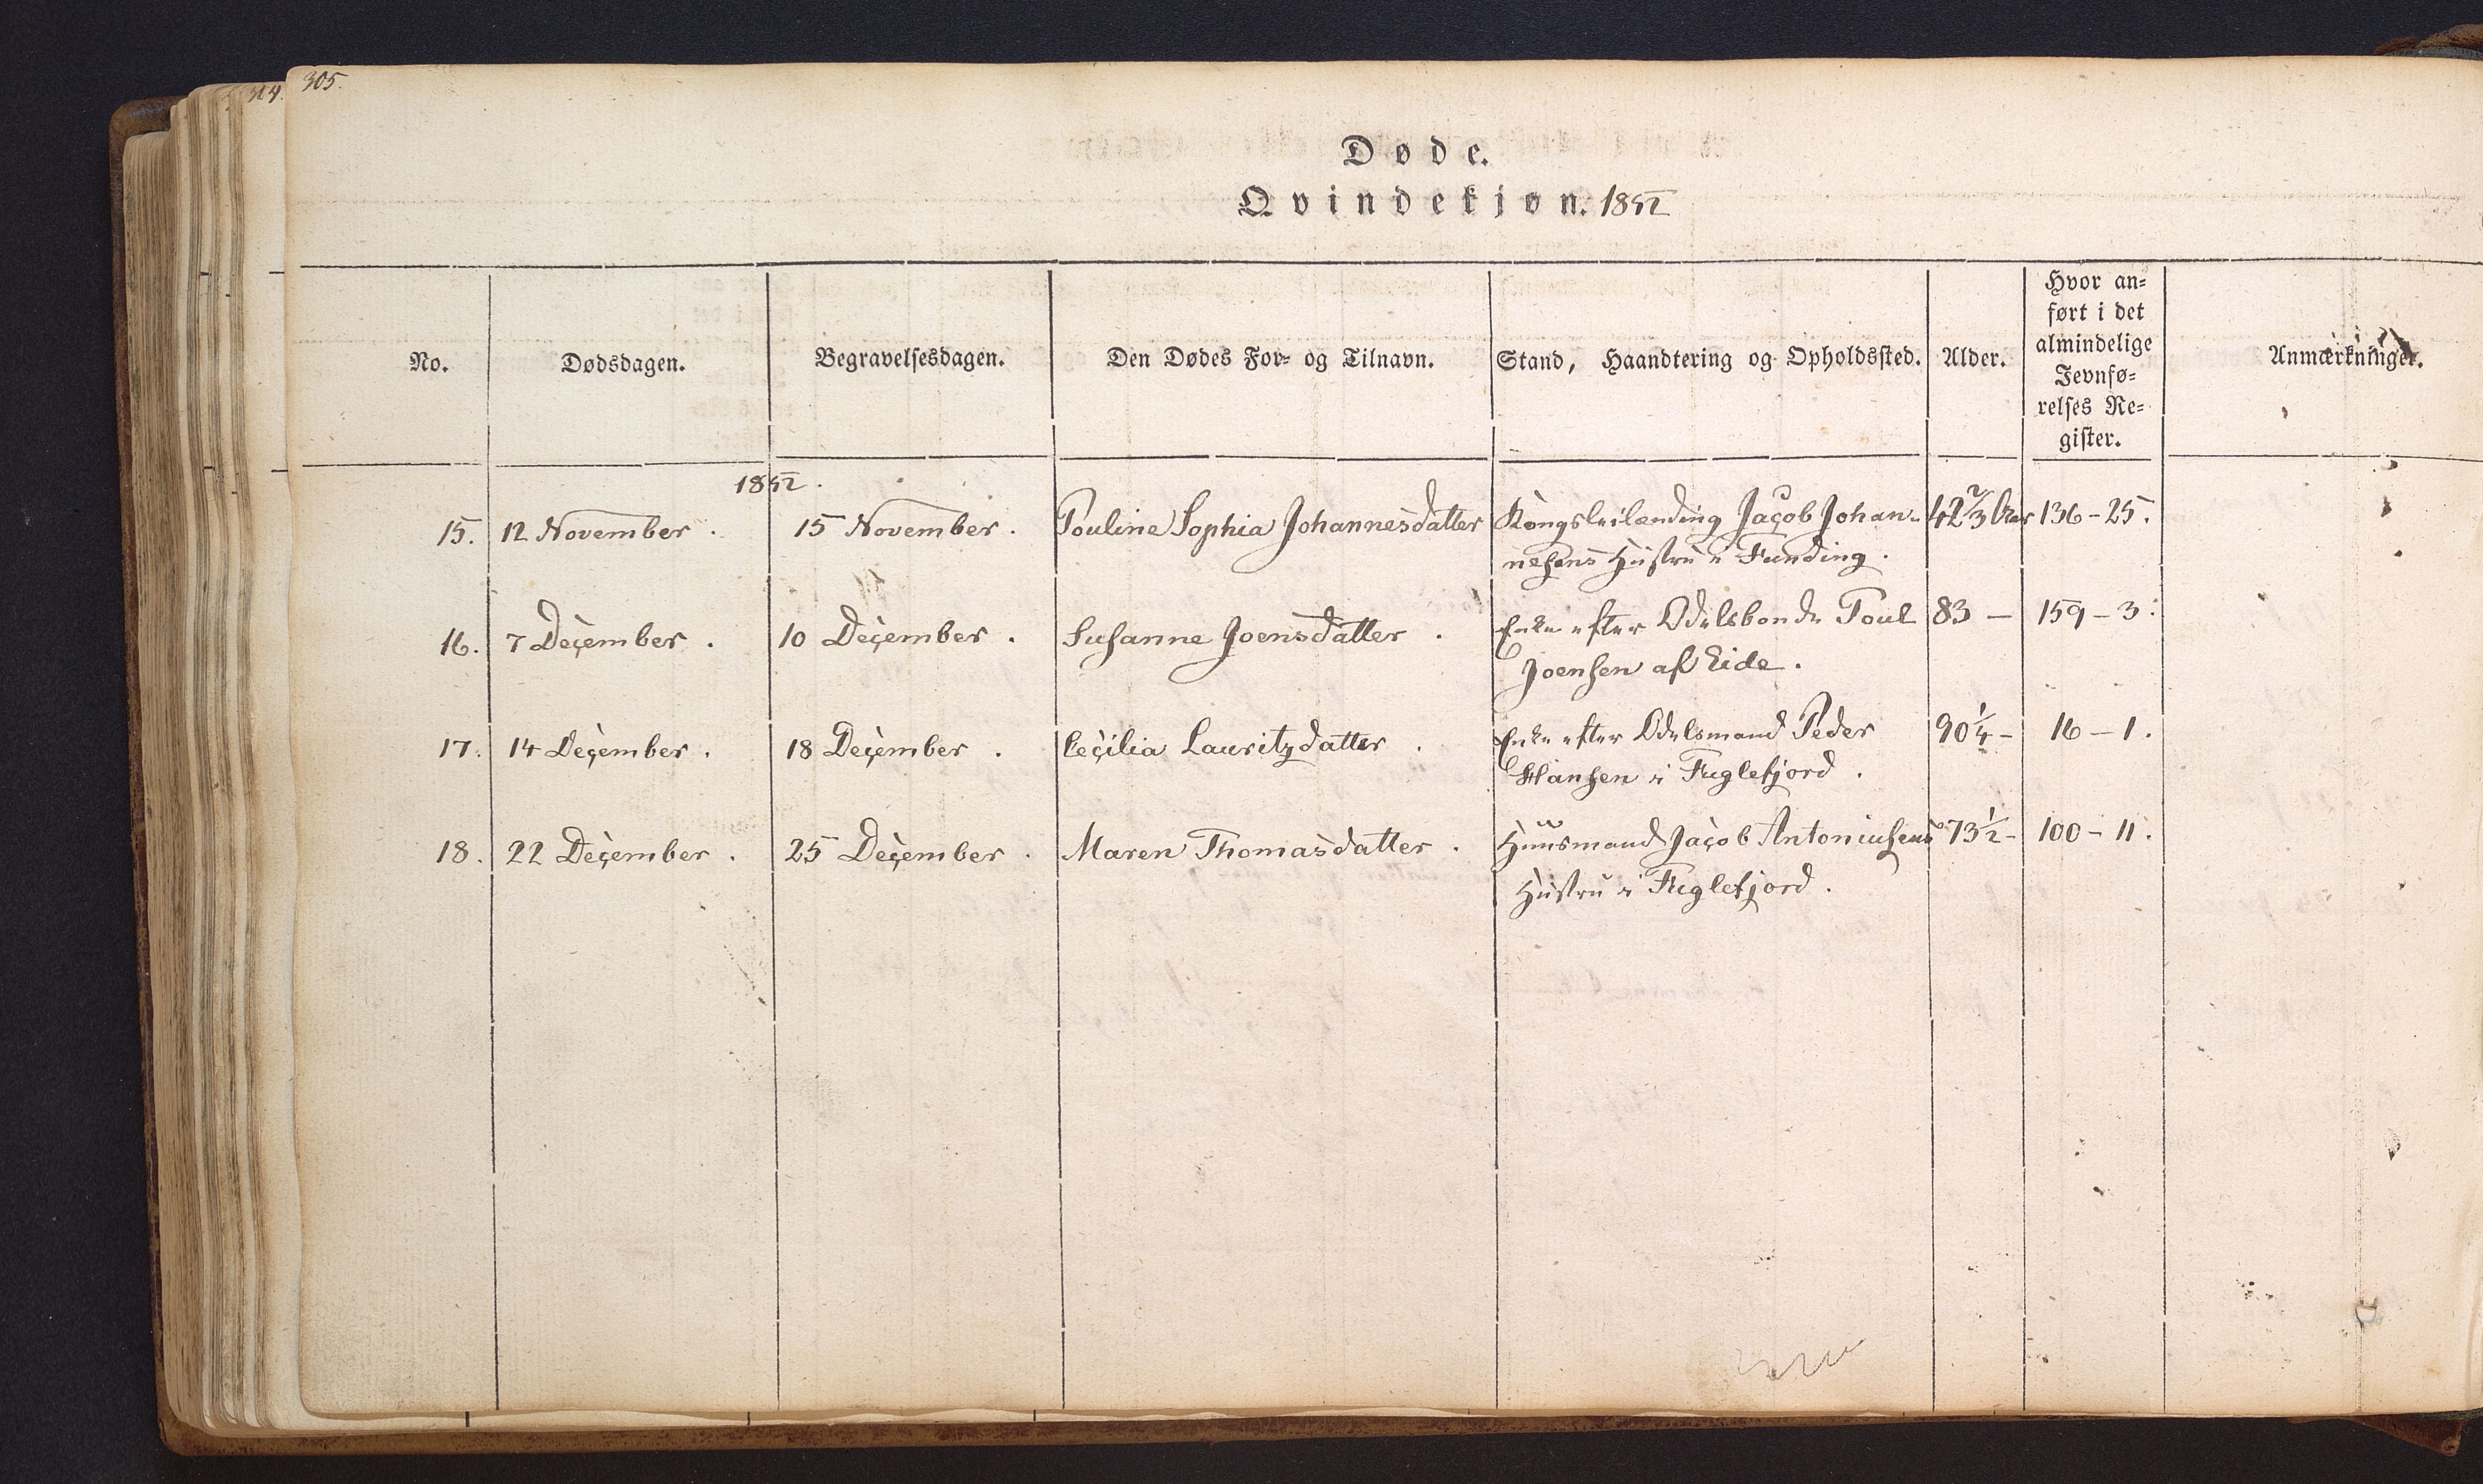 305.
Døde.
Qvindekjøn. 1852
No.
Dødsdagen.
Begravelsesdagen.
Den Dødes For- og Tilnavn.
Stand, Haandtering og Opholdssted.
Alder.
Hvor an-
ført i det
almindelige
Jevnfø-
relses Re-
gister.
Anmærkninger.
1852.
15. 12 November. 15 November. Pouline Sophia Johannesdatter Kongsleilænding Jacob Johan- 42 2/3 Aar 136-25.
nesens Hustru i Funding.
16. 7 December. 10 December. Susanne Joensdatter. Enke efter Odelsbonde Poul 83 — 159-3.
Joensen af Eide.
17. 14 December. 18 December. Cecilia Lauritzdatter. Enke efter Odelsmand Peder 90 1/4 - 16-1.
Hansen i Fuglefjord.
18. 22 December. 25 December. Maren Thomasdatter. Huusmand Jacob Antoniusens 73 1/2 - 100-11.
Hustru i Fuglefjord.